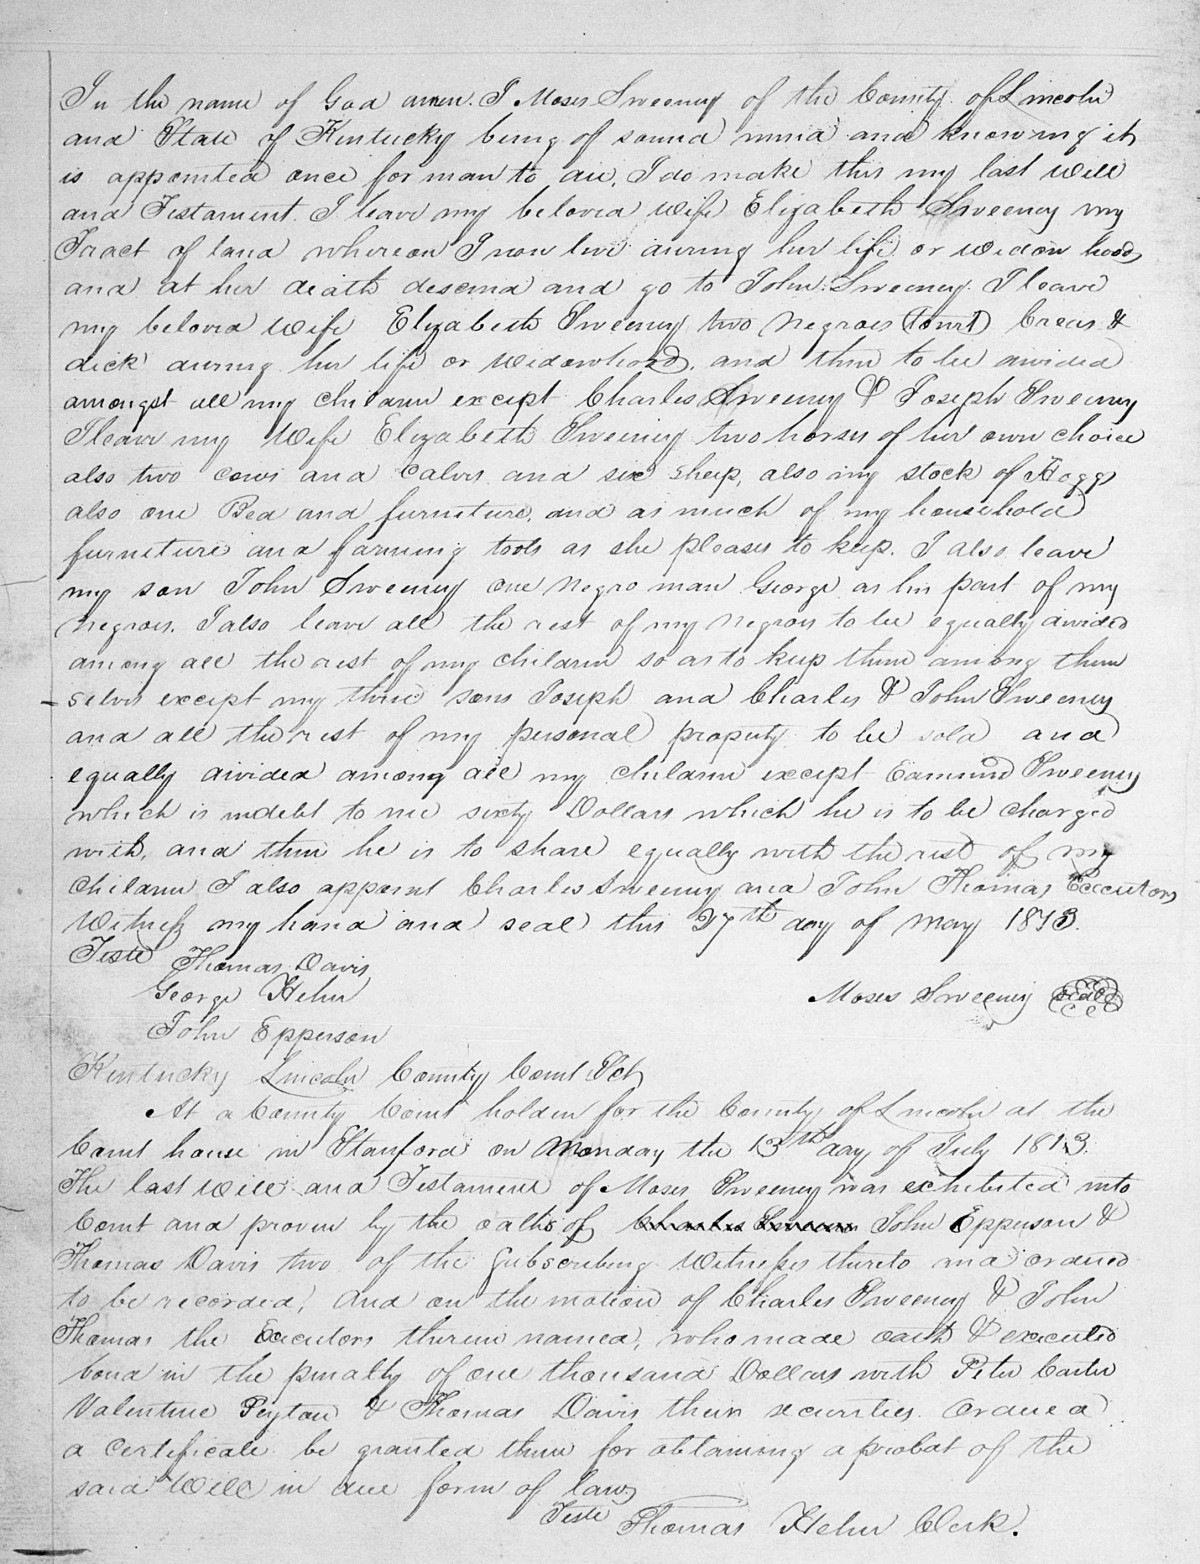 In the name of God amen. I Moses Sweeney of the County of Lincoln
and State of Kentucky being of sound mind and knowing it
is appointed once for man to die, I do make this my last Will
and Testament. I leave my beloved Wife Elizabeth Sweeney my
Tract of land whereon I now live during her life or widow hood,
and at her death descend and go to John Sweeney. I leave
my beloved Wife Elizabeth Sweeney two Negroes (towit) Creas &
dick during her life or Widowhood, and then to be divided
amongst all my children except Charles Sweeney & Joseph Sweeney
I leave my Wife Elizabeth Sweeney two horses of her own choice
also two cows and Calves and six sheep, also my stock of Hoggs
also one Bed and furniture, and as much of my household
furniture and farming tools as she pleases to keep. I also leave
my son John Sweeney one negro man George as his part of my
Negroes. I also leave all the rest of my Negroes to be equally divided
among all the rest of my children so as to keep them among them
selves except my three sons Joseph and Charles & John Sweeney
and all the rest of my personal property to be sold and
equally divided among all my children except Edmund Sweeney
which is indebt to me sixty Dollars which he is to be charged
with, and then he is to share equally with the rest of my
children I also appoint Charles Sweeney and John Thomas Executors
Witness my hand and seal this 27th day of May 1813.
Teste Thomas Davis
George Helm Moses Sweeney seal
John Epperson
Kentucky Lincoln County Court Sct,
At a County Court holden for the County of Lincoln at the
Court house in Stanford on Monday the 13th day of July 1813.
The last Will and Testament of Moses Sweeney was exhibited into
Court and proven by the oaths of John Epperson &
Thomas Davis two of the Subscribing Witnesses thereto and ordered
to be recorded, And on the motion of Charles Sweeney & John
Thomas the Executors therein named, who made oath & executed
bond in the penalty of one thousand Dollars with Peter Carter
Valentine Peyton & Thomas Davis their securities. Ordered
a Certificate be granted them for obtaining a probat of the
said Will in due form of law,
Teste Thomas Helm Clerk.